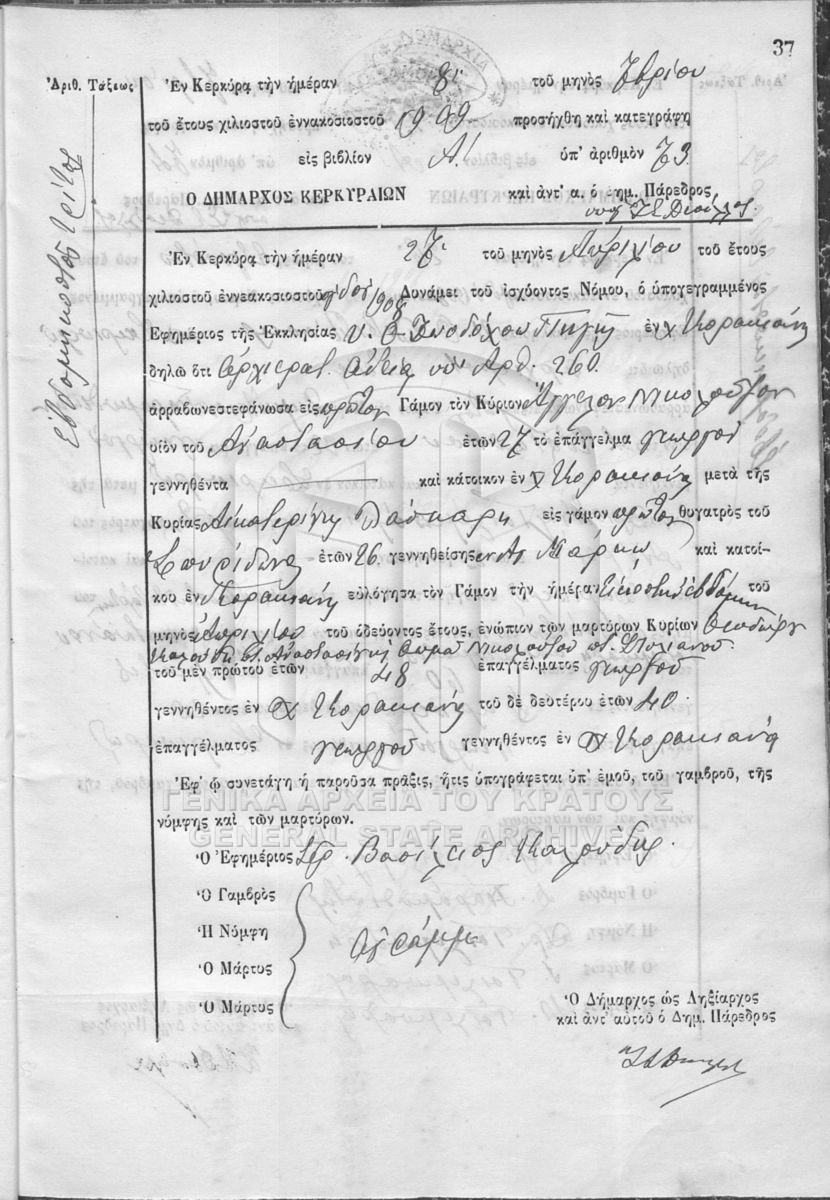 37
Ἀριθ. Τάξεως
Ἑβδομηκοστὸν τρίτον
Ἐν Κερκύρᾳ τὴν ἡμέραν 8ῃ τοῦ μηνὸς 7βρίου
τοῦ ἔτους χιλιοστοῦ ἐννακοσιοστοῦ 1909 προσήχθη καὶ κατεγράφη
εἰς βιβλίον Α! ὑπ' ἀριθμὸν 73
Ο ΔΗΜΑΡΧΟΣ ΚΕΡΚΥΡΑΙΩΝ καὶ ἀντ' α. ὁ δημ. Πάρεδρος
Ἐν Κερκύρᾳ τὴν ἡμέραν 27 τοῦ μηνὸς Ἀπριλίου τοῦ ἔτους
χιλιοστοῦ ἐννεακοσιοστοῦ ὀγδόου 1908 Δυνάμει τοῦ ἰσχύοντος Νόμου, ὁ ὑπογεγραμμένος
Ἐφημέριος τῆς Ἐκκλησίας Υ. Θ. Ζωοδόχου Πηγῆς ἐν χ Κορακιάνῃ
δηλῶ ὅτι Ἀρχιερατ. ἀδείᾳ ὑπ' Ἀρθ. 260
ἀρραβωνεστεφάνωσα εἰς πρῶτον Γάμον τὸν Κύριον Ἄγγελον Νικολούζον
υἱὸν τοῦ Ἀναστασίου ἐτῶν 27 τὸ ἐπάγγελμα γεωργοῦ
γεννηθέντα καὶ κάτοικον ἐν χ Κορακιάνῃ μετὰ τῆς
Κυρίας Αἰκατερίνης Λάσκαρη εἰς γάμον πρῶτον θυγατρὸς τοῦ
Σπυρίδωνα ἐτῶν 26 γεννηθείσης ἐν Ἁγ. Μάρκῳ καὶ κατοί-
κου ἐν Κορακιάνῃ εὐλόγησα τὸν Γάμον τὴν ἡμέραν Εἰκοστὴν ἑβδόμην τοῦ
μηνὸς Ἀπριλίου τοῦ ὁδεύοντος ἔτους, ἐνώπιον τῶν μαρτύρων Κυρίων Θεοδώρου
Καλούδη Θωμᾶ Νικολούζου
τοῦ μὲν πρώτου ἐτῶν 48 ἐπαγγέλματος γεωργοῦ
γεννηθέντος ἐν χ Κορακιάνῃ τοῦ δὲ δευτέρου ἐτῶν 40
ἐπαγγέλματος γεωργοῦ γεννηθέντος ἐν χ Κορακιάνᾳ
Ἐφ' ᾧ συνετάγη ἡ παροῦσα πρᾶξις, ἥτις ὑπογράφεται ὑπ' ἐμοῦ, τοῦ γαμβροῦ, τῆς
νύμφης καὶ τῶν μαρτύρων.
ΓΕΝΙΚΑ ΑΡΧΕΙΑ ΤΟΥ ΚΡΑΤΟΥΣ
GENERAL STATE ARCHIVES
Ὁ Ἐφημέριος Ἱερ. Βασίλειος Καλούδης
Ὁ Γαμβρὸς
Ἡ Νύμφη
Ἀγράμμ.
Ὁ Μάρτυς
Ὁ Μάρτυς
Ὁ Δήμαρχος ὡς Ληξίαρχος
καὶ ἀντ' αὐτοῦ ὁ Δημ. Πάρεδρος